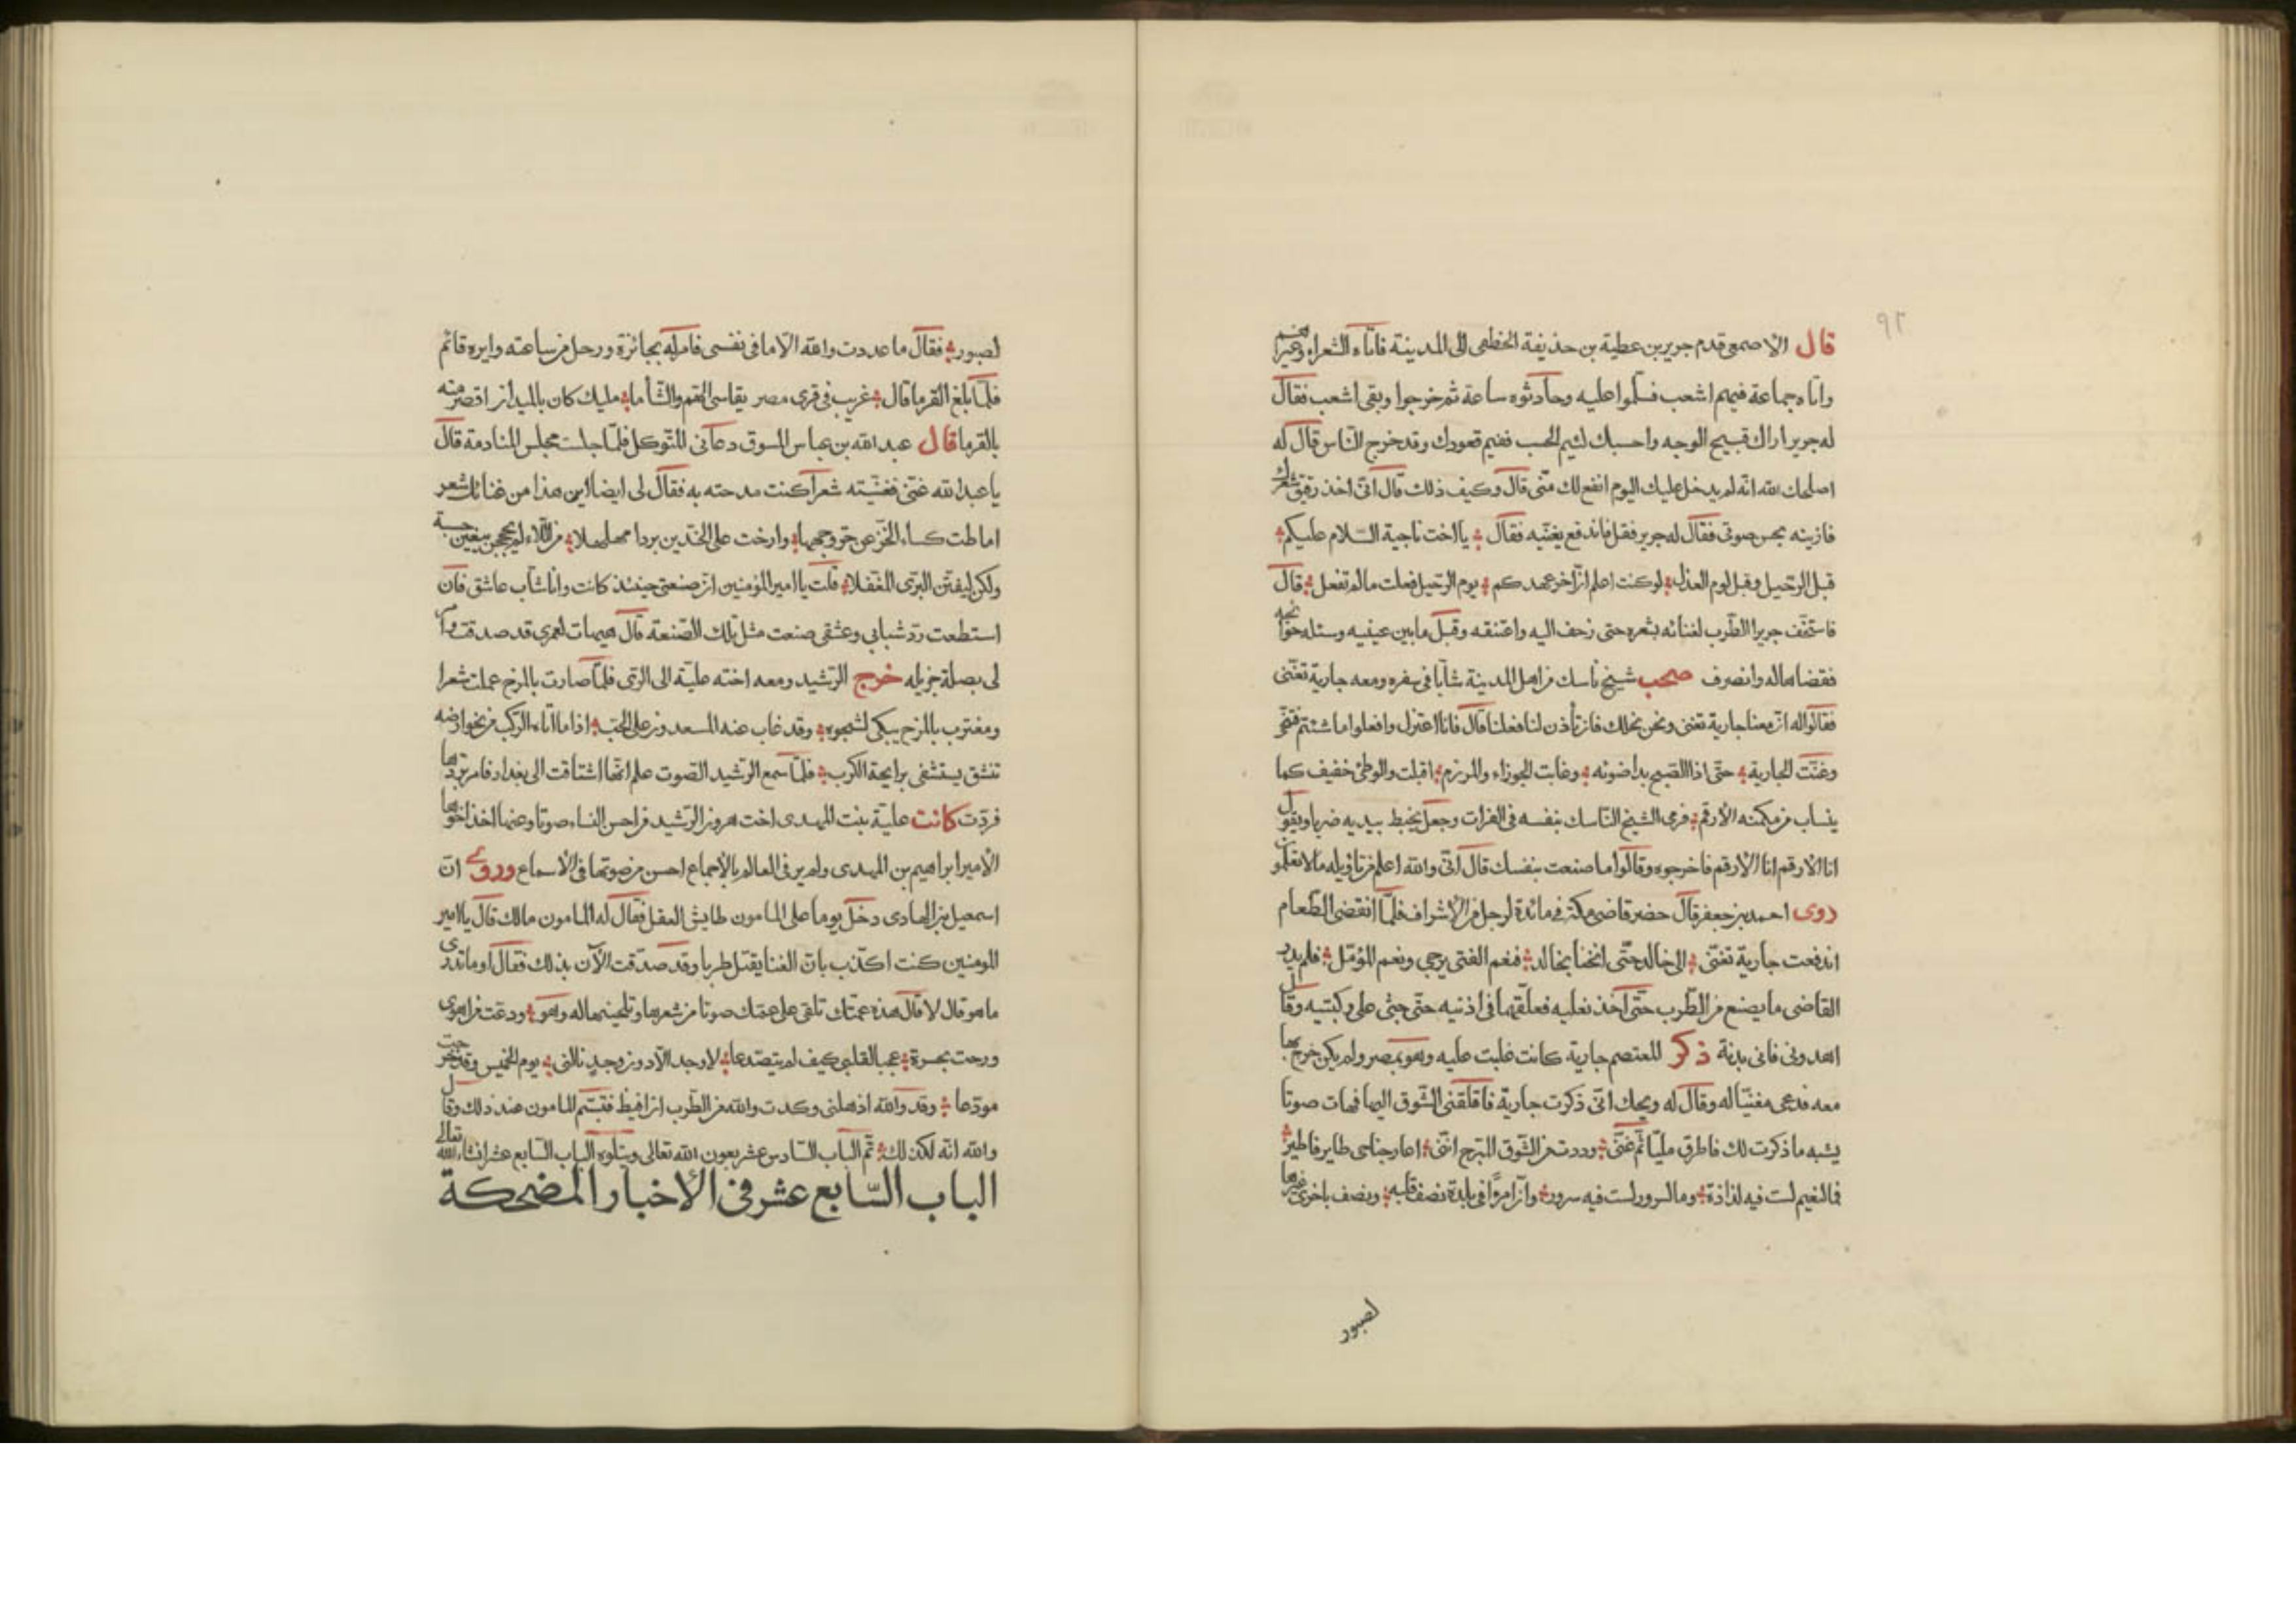 ٩٢
قال الاصمعى قدم جرير بن عطية بن حذيفة الخطفى الى المدينة فاتاه الشعراء وغيرهم
واتاه جماعة فيهم اشعب فسلّموا عليه وحادثوه ساعة ثم خرجوا وبقى اشعب فقال
له جرير اراك قبيح الوجه واحسبك لئيم الحسب ففيم قعودك وقد خرج النّاس قال له
اصلحك الله انّه لم يدخل عليك اليوم انفع لك منّى قال وكيف ذلك قال انّى اخذ رقيق شعرك
فازينه بحسن صوتى فقال له جرير فقل فاندفع يغنّيه فقال يا اخت ناجية السّلام عليكم
قبل الرّحيل وقبل لوم العذل لو كنت اعلم انّ اخر عهدكم يوم الرّحيل فعلت ما لم تفعل قال
فاستخفّ جريرا الطّرب لغنائه بشعره حتى زحف اليه واعتنقه وقبّل ما بين عينيه وسئله حوائجه
فقضاها له وانصرف صحب شيخ ناسك من اهل المدينة شابا فى سفره ومعه جارية تغنّى
فقالوا له انّ معنا جارية تغنى ونحن نجلك فان تأذن لنا فعلنا قال فانا اعتزل وافعلوا ما شئتم فتنحّى
وغنّت الجارية حتّى اذا الصّبح بدا ضوئه وغابت الجوزاء والمرزم اقبلت والوطئ خفيف كما
ينساب من مكمنه الارقم فرمى الشيخ النّاسك بنفسه فى الفرات وجعل يخبط بيديه ضربا ويقول
انا الارقم انا الارقم فاخرجوه وقالوا ما صنعت بنفسك قال انّى والله اعلم من تاويله ما لا تعلمون
روى احمد بن جعفر قال حضر قاضى مكّة فى مائدة لرجل من الاشراف فلمّا انقضى الطّعام
اندفعت جارية تغنّى الى خالد حتّى انخنا بخالد فنعم الفتى يرجى ونعم المؤمّل فلم يدر
القاضى ما يصنع من الطّرب حتّى اخذ نعليه فعلّقهما فى اذنيه حتى جثى على ركبتيه وقال
اهدونى فانى بدنة ذكر للمعتصم جارية كانت غلبت عليه وهو بمصر ولم يكن خرج بها
معه فدعى مغنّيا له وقال له ويحك انّى ذكرت جارية فاقلقنى الشّوق اليها فهات صوتا
يشبه ما ذكرت لك فاطرق مليّا ثم غنّى وددت من الشّوق المبرّح انّنى اعار جناحى طاير فاطير
فما لنعيم لست فيه لذاذة وما لسرور لست فيه سرور وانّ امرءًا فى بلدة نصف قلبه ونصف باخرى غيرها
لصبور
لصبور فقال ما عددت والله الّا ما فى نفسى فامر له بجائزة ورحل من ساعته وايره قائم
فلمّا بلغ القرما قال غريب فى قرى مصر يقاسى الهمّ والسّأما مليك كان بالميدان اقصر منه
بالقرما قال عبد الله بن عباس المسوق دعانى المتوكل فلمّا جلست مجلس المنادمة قال
يا عبد الله غنّى فغنّيته شعرا كنت مدحته به فقال لى ايضا اين هذا من غنائك شعر
اماطت كساء الخزّ عن حرّ وجهها وارخت على الخدّين بردا مهلهلا من اللّاء لم يحججن يبغين حسبة
ولكن ليفتنّ البرى المغفلا قلت يا امير المؤمنين انّ صنعتى حينئذ كانت وانا شابّ عاشق فان
استطعت ردّ شبابى وعشقى صنعت مثل تلك الصّنعة قال هيهات لعمرى قد صدقت وامر
لى بصلة جزيله خرج الرّشيد ومعه اخته عليّة الى الرّى فلمّا صارت بالمرج عملت شعرا
ومغترب بالمرج يبكى لشجوه وقد غاب عنه المسعدون على الحبّ اذا ما اتاه الرّكب من نحو ارضه
تنشق يستشفى برايحة الكرب فلمّا سمع الرّشيد الصّوت علم انّها اشتاقت الى بغداد فامر بردّها
فردّت كانت عليّة بنت المهدى اخت هرون الرّشيد من احسن النساء صوتا وعنها اخذ اخوها
الامير ابراهيم بن المهدى ولم ير فى العالم بالاجماع احسن من صوتها فى الاسماع وروى انّ
اسمعيل بن الهادى دخل يوما على المامون طايش العقل فقال له المامون مالك قال يا امير
المومنين كنت اكذب بانّ الغنا يقتل طربا وقد صدّقت الآن بذلك فقال او ما تدرى
ما هو قال لا قال هذه عمّتك تلقى على عمّك صوتا من شعرها وتلحينها له وهو ودعت من اهوى
ورحت بحسرة عجبا لقلبى كيف لم يتصدعا لا وجد الّا دون وجد نالنى يوم الخميس وقد خرجت
مودّعا وقد والله اذهلنى وكدت والله من الطّرب ان افيظ فتبسّم المامون عند ذلك وقال
والله انّه لكذلك تمّ الباب السّادس عشر بعون الله تعالى ويتلوه الباب السّابع عشر انشاء الله تعالى
الباب السّابع عشر فى الاخبار المضحكة